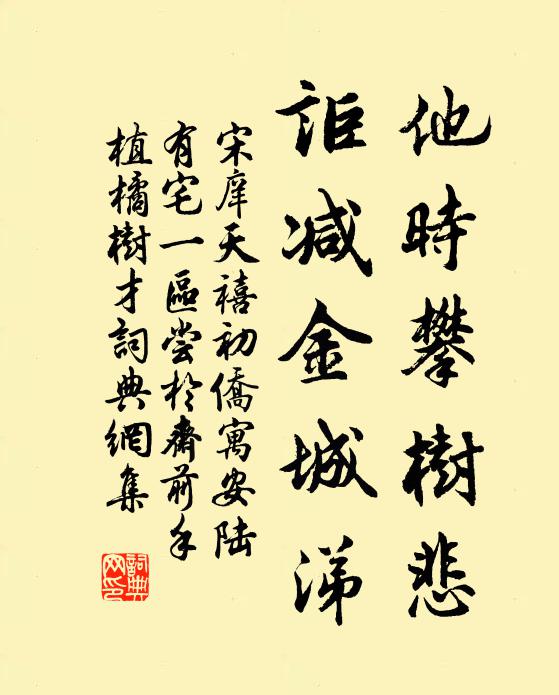 他時攀樹悲
詎減金城涕
宋庠天禧初僑寓安陆
有宅一區嘗於齋前手
植橘樹才詞典網集
詞典
网印